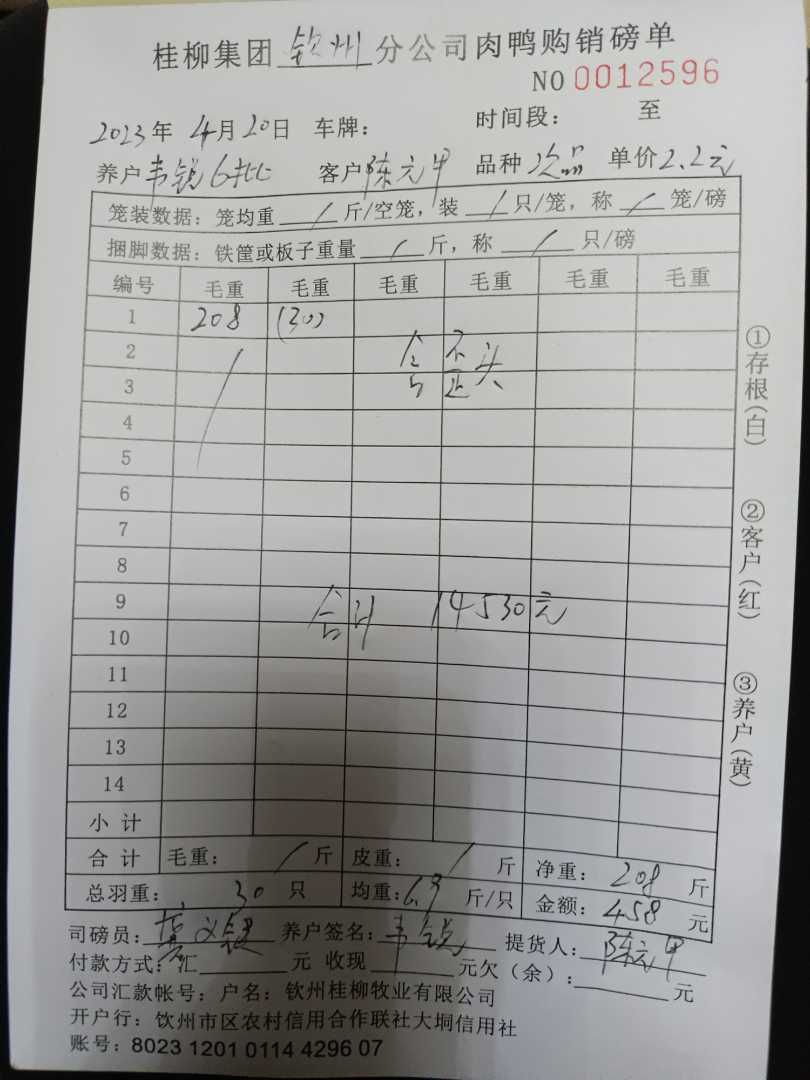 桂柳集团 钦州 分公司肉鸭购销磅单
NO 0012596
2023年 4月 20日 车牌： 时间段： 至
养户 韦锐6批 客户 陈元甲 品种 次品 单价 2.2元
笼装数据：笼均重 / 斤/空笼，装 / 只/笼，称 / 笼/磅
捆脚数据：铁筐或板子重量 / 斤，称 / 只/磅
编号 毛重 毛重 毛重 毛重 毛重 毛重
1 208 (30)
2
3
4
5
6
7
8
9 合计 14530元
10
11
12
13
14
小计
合计 毛重： / 斤 皮重： / 斤 净重： 208 斤
总羽重： 30 只 均重： 6.9 斤/只 金额： 458 元
司磅员： 养户签名： 韦锐 提货人： 陈元甲
付款方式：汇 元 收现 元欠（余）： 元
公司汇款帐号：户名：钦州桂柳牧业有限公司
开户行：钦州市区农村信用合作联社大垌信用社
账号：8023 1201 0114 4296 07
①存根（白）
②客户（红）
③养户（黄）